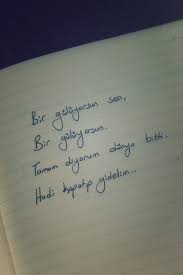 Bir gülüyorsun sen,
Bir gülüyorsun.
Tamam diyorum dünya bitti.
Hadi kapatıp gidelim...